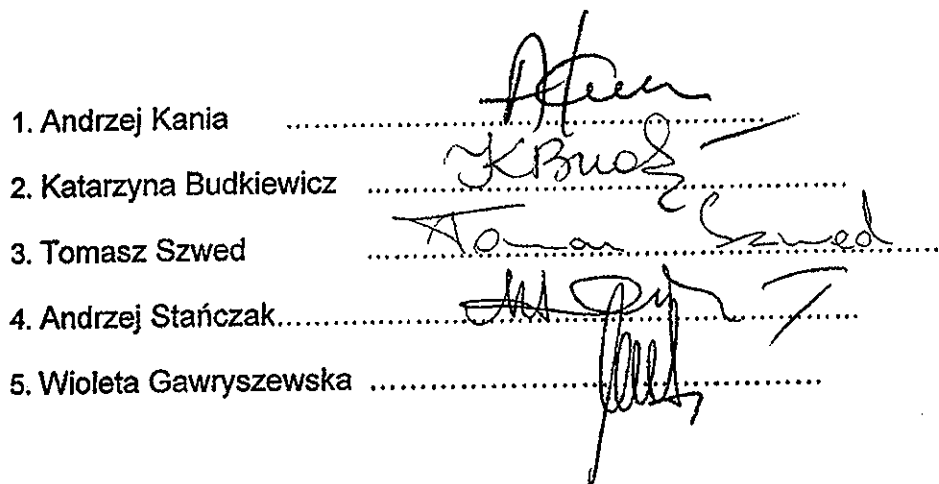 1. Andrzej Kania ....................
2. Katarzyna Budkiewicz ....................
KBud
3. Tomasz Szwed ....................
Tomasz Szwed
4. Andrzej Stańczak....................
5. Wioleta Gawryszewska ....................